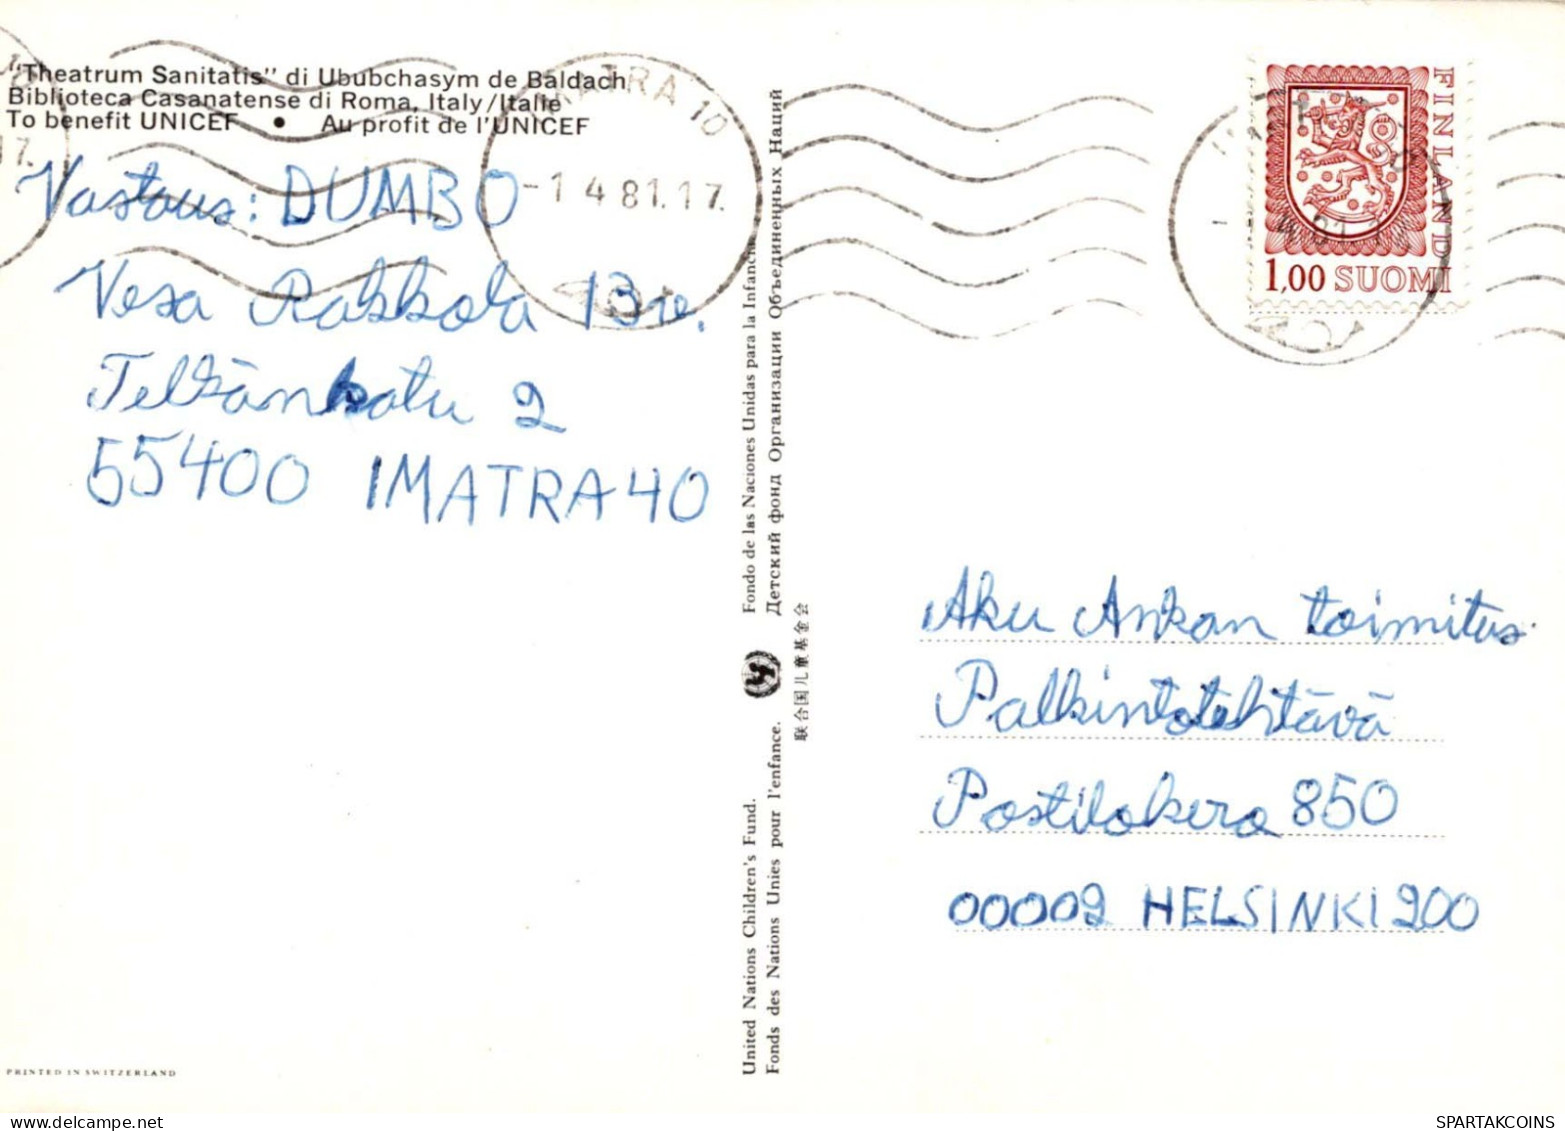 "Theatrum Sanitatis" di Ububchasym de Baldach
Biblioteca Casanatense di Roma, Italy/Italie
To benefit UNICEF • Au profit de l'UNICEF
Vastaus: DUMBO
Vesa Rakkola 13 v.
Telkänkatu 2
55400 IMATRA 40
IMATRA 10
-1 4 81.17.
17.
FINLAND
1,00 SUOMI
United Nations Children's Fund.
Fonds des Nations Unies pour l'enfance.
Fondo de las Naciones Unidas para la Infancia
Детский фонд Организации Объединенных Наций
联合国儿童基金会
Aku Ankan toimitus
Palkintotehtävä
Postilokero 850
00002 HELSINKI 200
PRINTED IN SWITZERLAND
SPARTAKCOINS